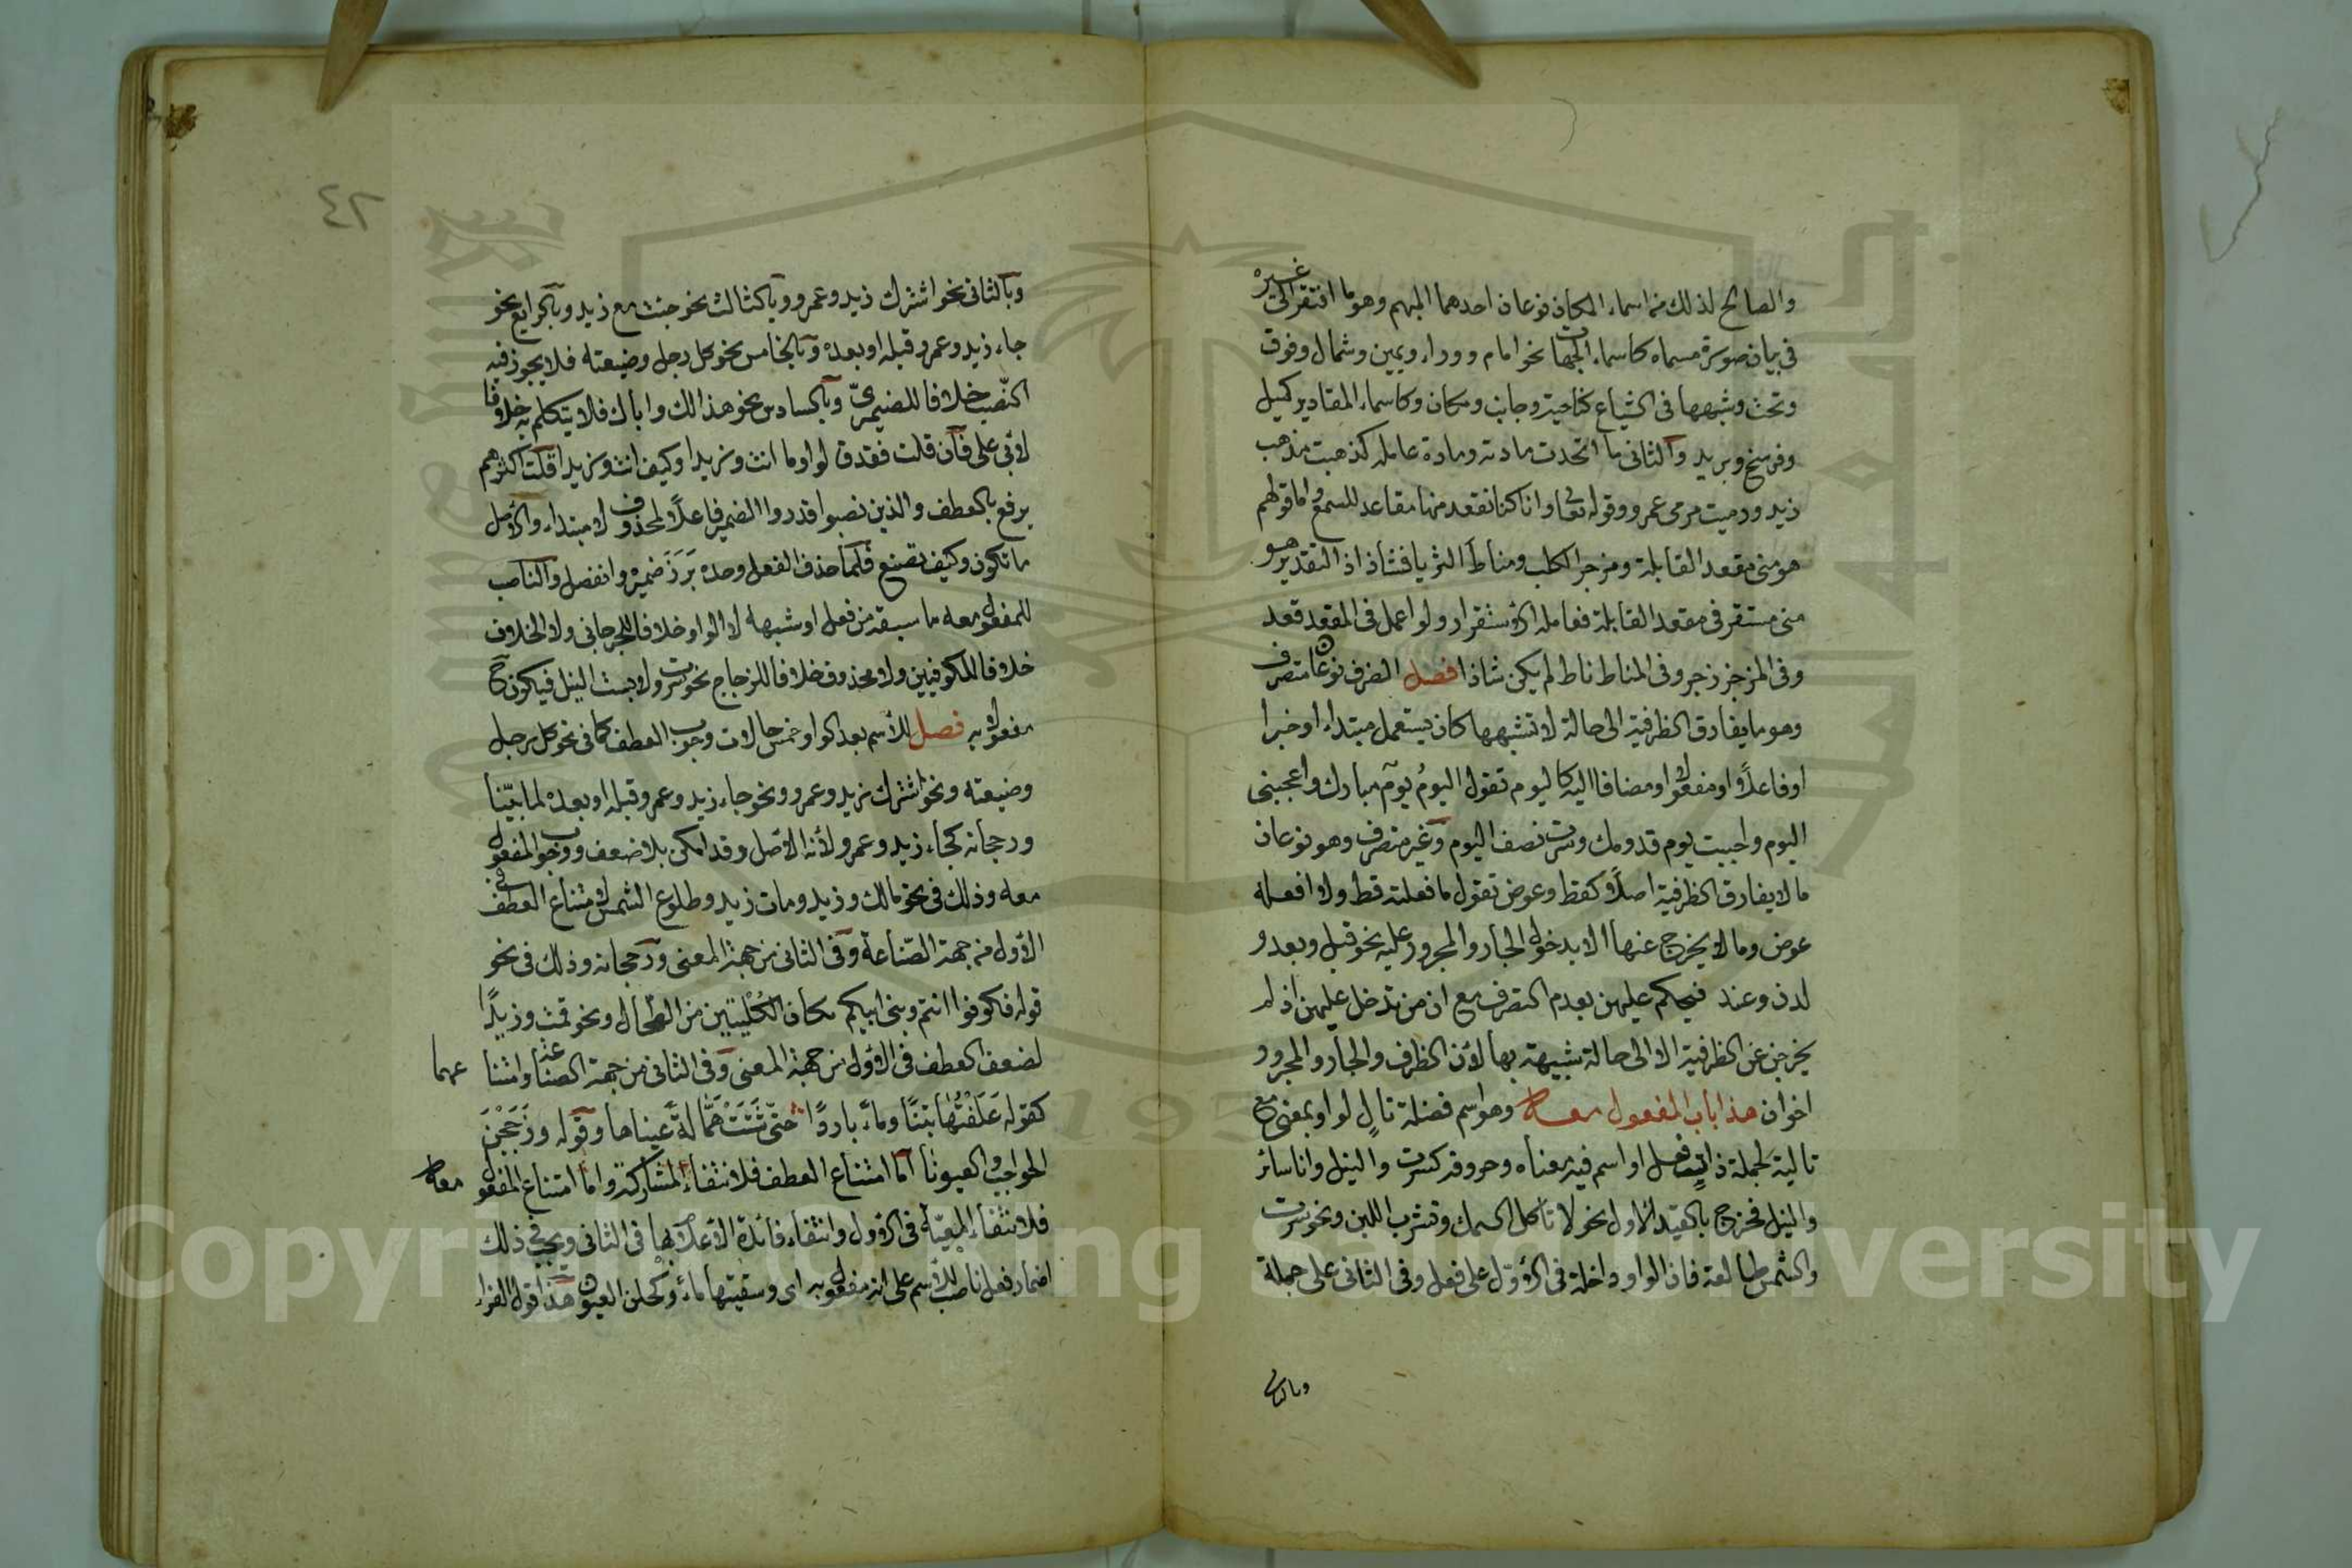 والصالح لذلك من اسماء المكان نوعان احدهما المبهم وهو ما افتقر الى غيره
في بيان صورة مسماه كاسماء الجهات نحو امام ووراء ويمين وشمال وفوق
وتحت وشبهها في الشياع كناحية وجانب ومكان وكاسماء المقادير كميل
وفرسخ وبريد والثاني ما اتحدت مادته ومادة عامله كذهبت مذهب
زيد ورميت مرمى عمرو وقوله تعا وانا كنا نقعد منها مقاعد للسمع واما قولهم
هو منى مقعد القابلة ومزجر الكلب ومناط الثريا فشاذ اذ التقدير هو
منى مستقر في مقعد القابلة فعامله الاستقرار ولو اعمل في المقعد قعد
وفي المزجر زجر وفي المناط ناط لم يكن شاذا فصل الظرف نوعان متصرف
وهو ما يفارق الظرفية الى حالة لا تشبهها كان يستعمل مبتداء او خبرا
او فاعلا او مفعولا او مضافا اليه كاليوم تقول اليوم يوم مبارك واعجبنى
اليوم واحببت يوم قدومك وسرت نصف اليوم وغير متصرف وهو نوعان
ما لا يفارق الظرفية اصلا كقط وعوض تقول ما فعلته قط ولا افعله
عوض وما لا يخرج عنها الا بدخول الجار والمجرور عليه نحو قبل وبعد و
لدن وعند فيحكم عليهن بعدم التصرف مع ان من تدخل عليهن اذ لم
يخرجن عن الظرفية الا الى حالة شبيهة بها لان الظرف والجار والمجرور
اخوان هذا باب المفعول معه وهو اسم فضلة تال لواو بمعنى مع
تالية لجملة ذات فعل او اسم فيه معناه وحروفه كسرت والنيل وانا سائر
والنيل فخرج بالقيد الاول نحو لا تأكل السمك وتشرب اللبن ونحو سرت
والشمس طالعة فان الواو داخلة في الاول على فعل وفي الثانى على جملة
وبالثانى
٤٢
وبالثانى نحو اشترك زيد وعمرو وبالثالث نحو جئت مع زيد وبالرابع نحو
جاء زيد وعمرو قبله او بعده وبالخامس نحو كل رجل وضيعته فلا يجوز فيه
النصب خلافا للصيمرى وبالسادس نحو هذا لك واباك فلا يتكلم به خلافا
لابى على فان قلت فقد قالوا ما انت وزيدا وكيف انت وزيدا قلت اكثرهم
يرفع بالعطف والذين نصبوا قدروا الضمير فاعلا لمحذوف لا مبتداء والاصل
ما تكون وكيف تصنع فلما حذف الفعل وحده برز ضميره وانفصل والناصب
للمفعول معه ما سبقه من فعل او شبهه لا الواو خلافا للجرجانى ولا الخلاف
خلافا للكوفيين ولا محذوف خلافا للزجاج نحو سرت ولابست النيل فيكون ح
مفعولا به فصل للاسم بعد الواو خمس حالات وجوب العطف كما في نحو كل رجل
وضيعته ونحو اشترك زيد وعمرو ونحو جاء زيد وعمرو قبله او بعده لما بينا
ورجحانه كجاء زيد وعمرو لانه الاصل وقد امكن بلا ضعف ووجوب المفعول
معه وذلك في نحو مالك وزيد ومات زيد وطلوع الشمس لامتناع العطف في
الاول من جهة الصناعة وفي الثانى من جهة المعنى ورجحانه وذلك في نحو
قوله فكونوا انتم وبنى ابيكم مكان الكليتين من الطحال ونحو قمت وزيدا
لضعف العطف في الاول من جهة المعنى وفي الثانى من جهة الصناعة وامتنا عهما
كقوله علفتها تبنا وماء باردا حتى شتت همالة عيناها وقوله وزججن
الحواجب والعيونا اما امتناع العطف فلانتفاء المشاركة واما امتناع المفعول معه
فلانتفاء المعية في الاول وانتفاء فائدة الاعلام بها في الثانى ويجب في ذلك
اضمار فعل ناصب للاسم على انه مفعول به اى وسقيتها ماء وكحلن العيون هذا قول الفراء
Copyright © King Saud University